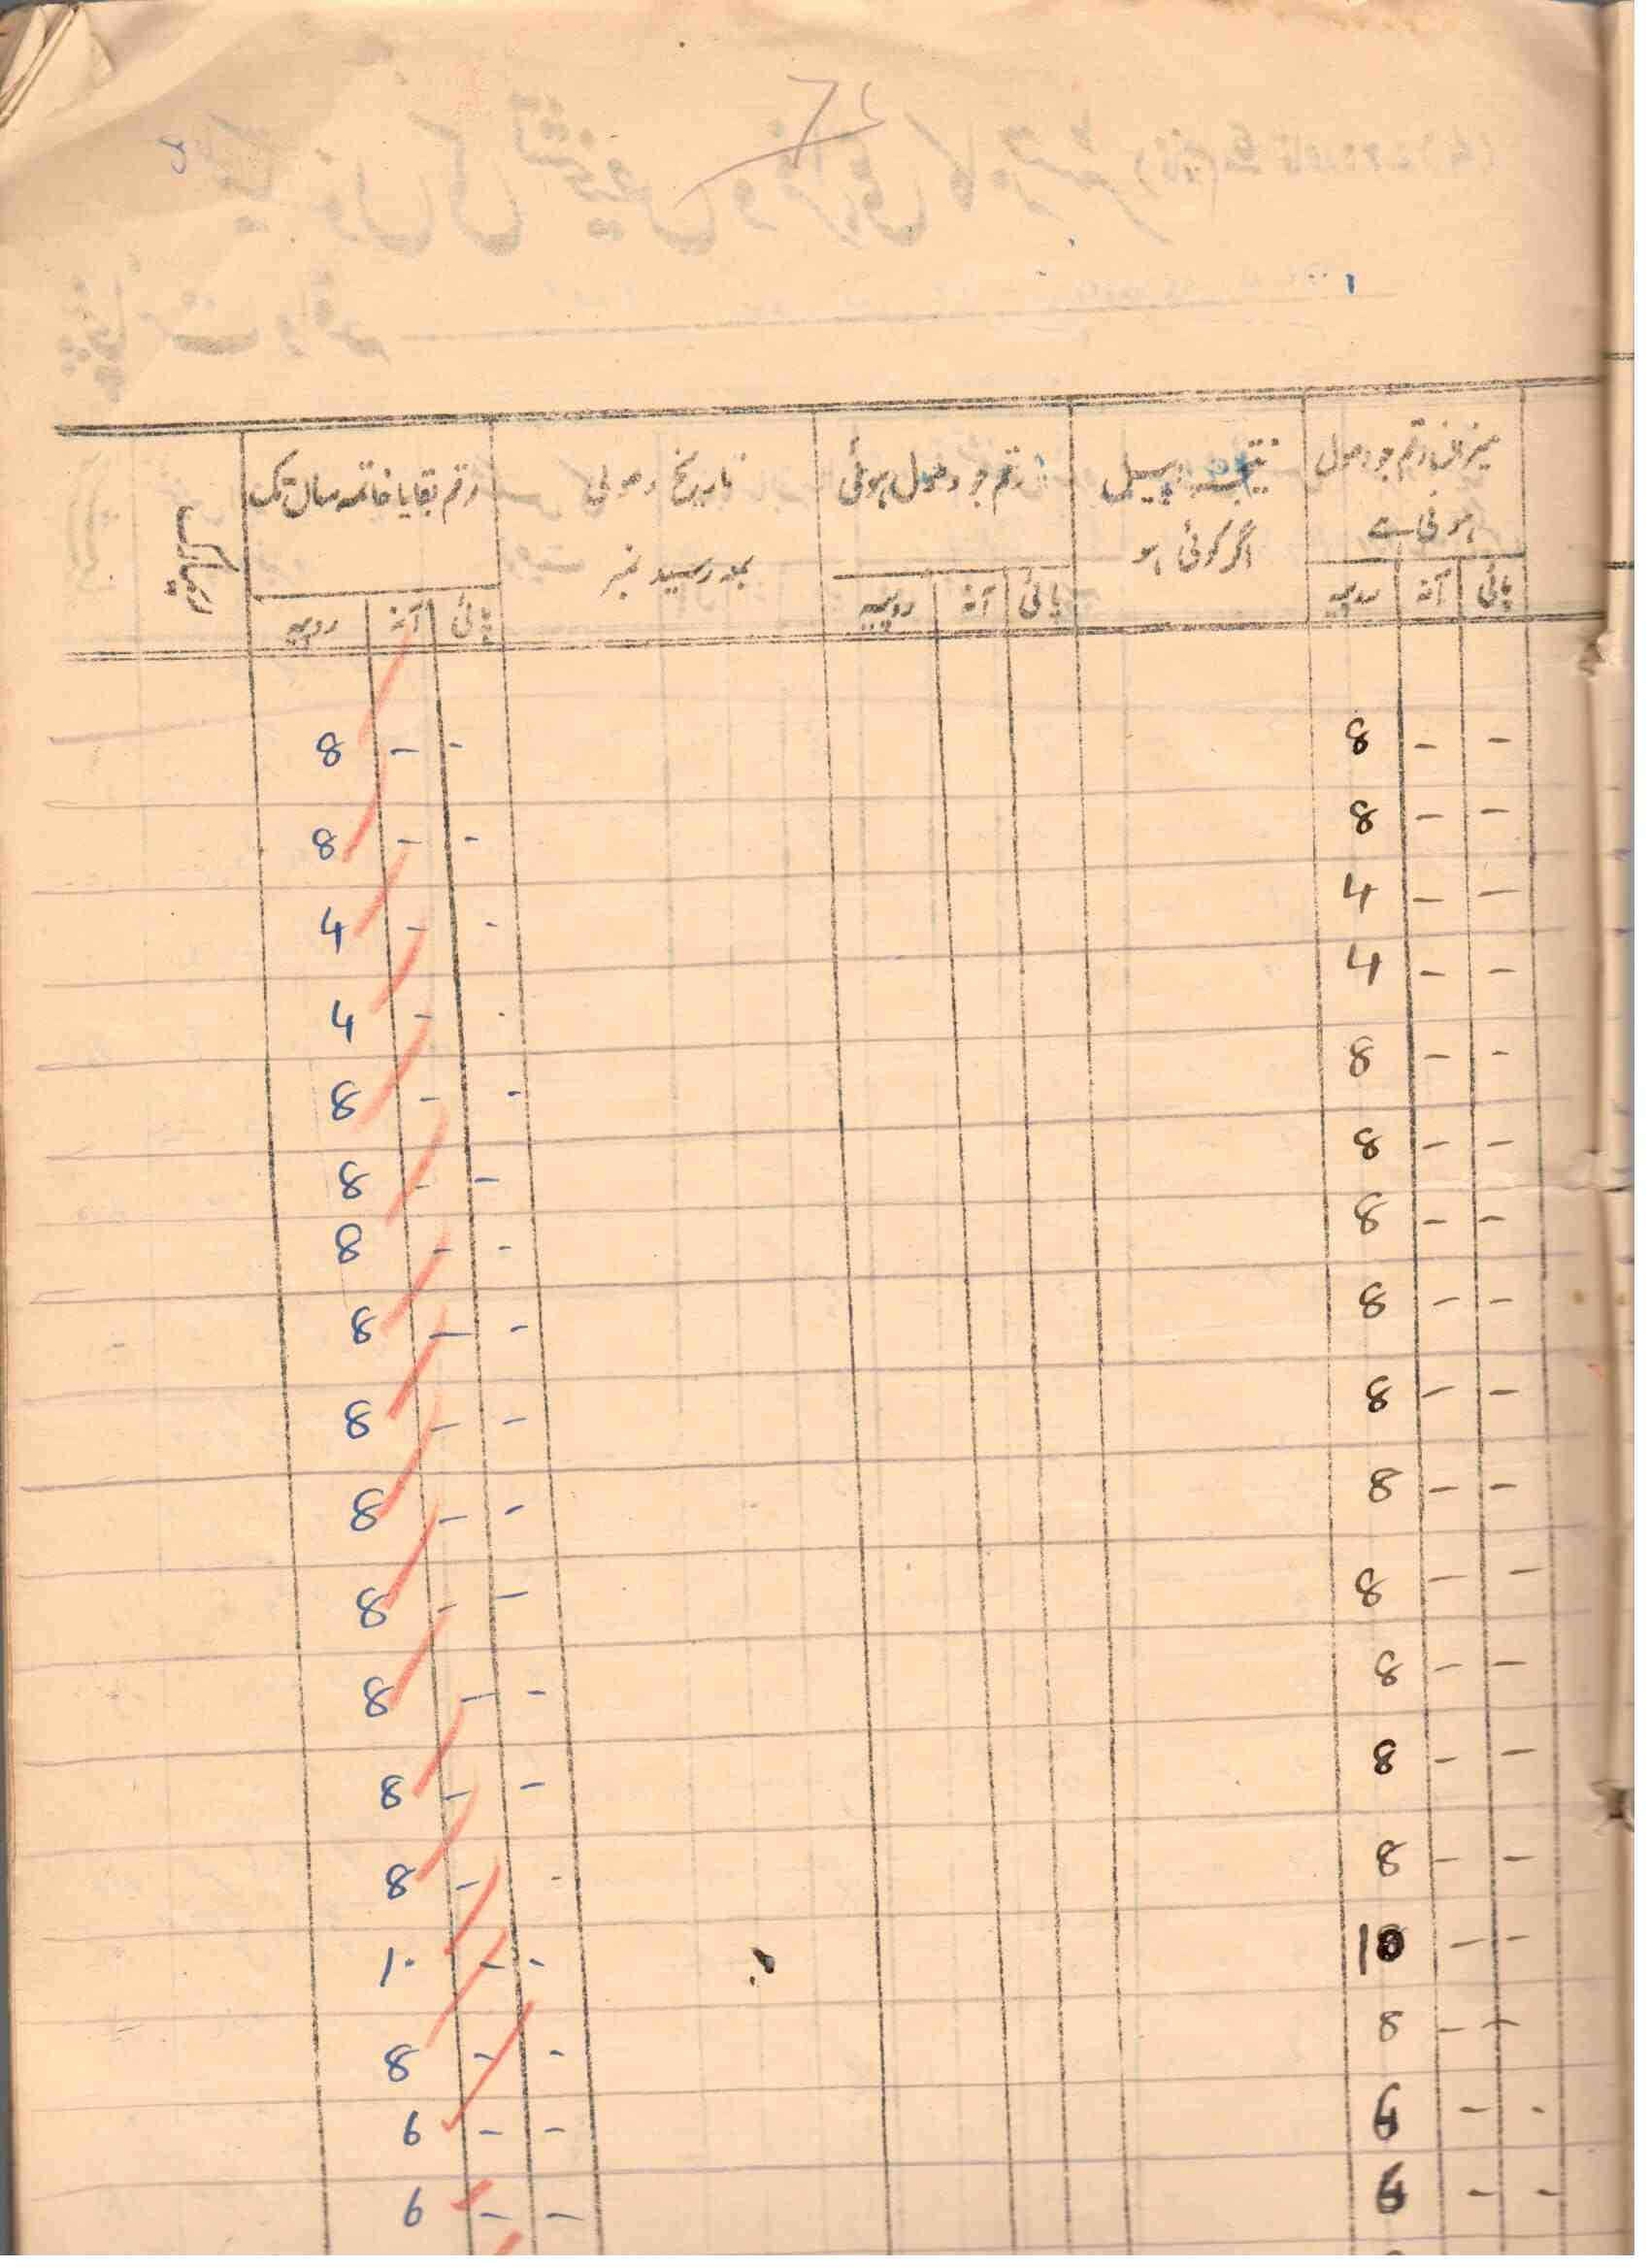 میزان رقم جو وصول ہونی ہے | نتیجہ اپیل اگر کوئی ہو | رقم جو وصول ہوئی | تاریخ وصولی بمعہ رسید نمبر | رقم بقایا خاتمہ سال تک
پائی آنہ روپیہ | پائی آنہ روپیہ | پائی آنہ روپیہ
- - 8 | - - 8
- - 8 | - - 8
- - 4 | - - 4
- - 4 | - - 4
- - 8 | - - 8
- - 8 | - - 8
- - 8 | - - 8
- - 8 | - - 8
- - 8 | - - 8
- - 8 | - - 8
- - 8 | - - 8
- - 8 | - - 8
- - 8 | - - 8
- - 8 | - - 8
- - 10 | - - 10
- - 8 | - - 8
- - 6 | - - 6
- - 6 | - - 6